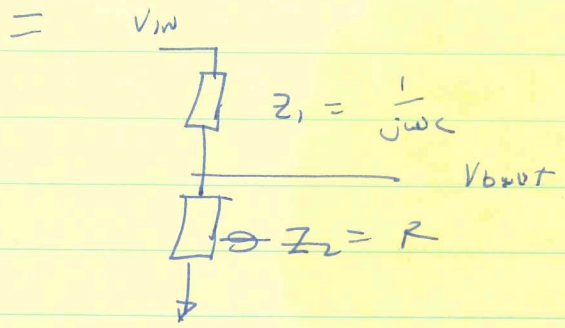 =
VIN
Z₁ = 1/jωc
Vbout
Z₂ = R